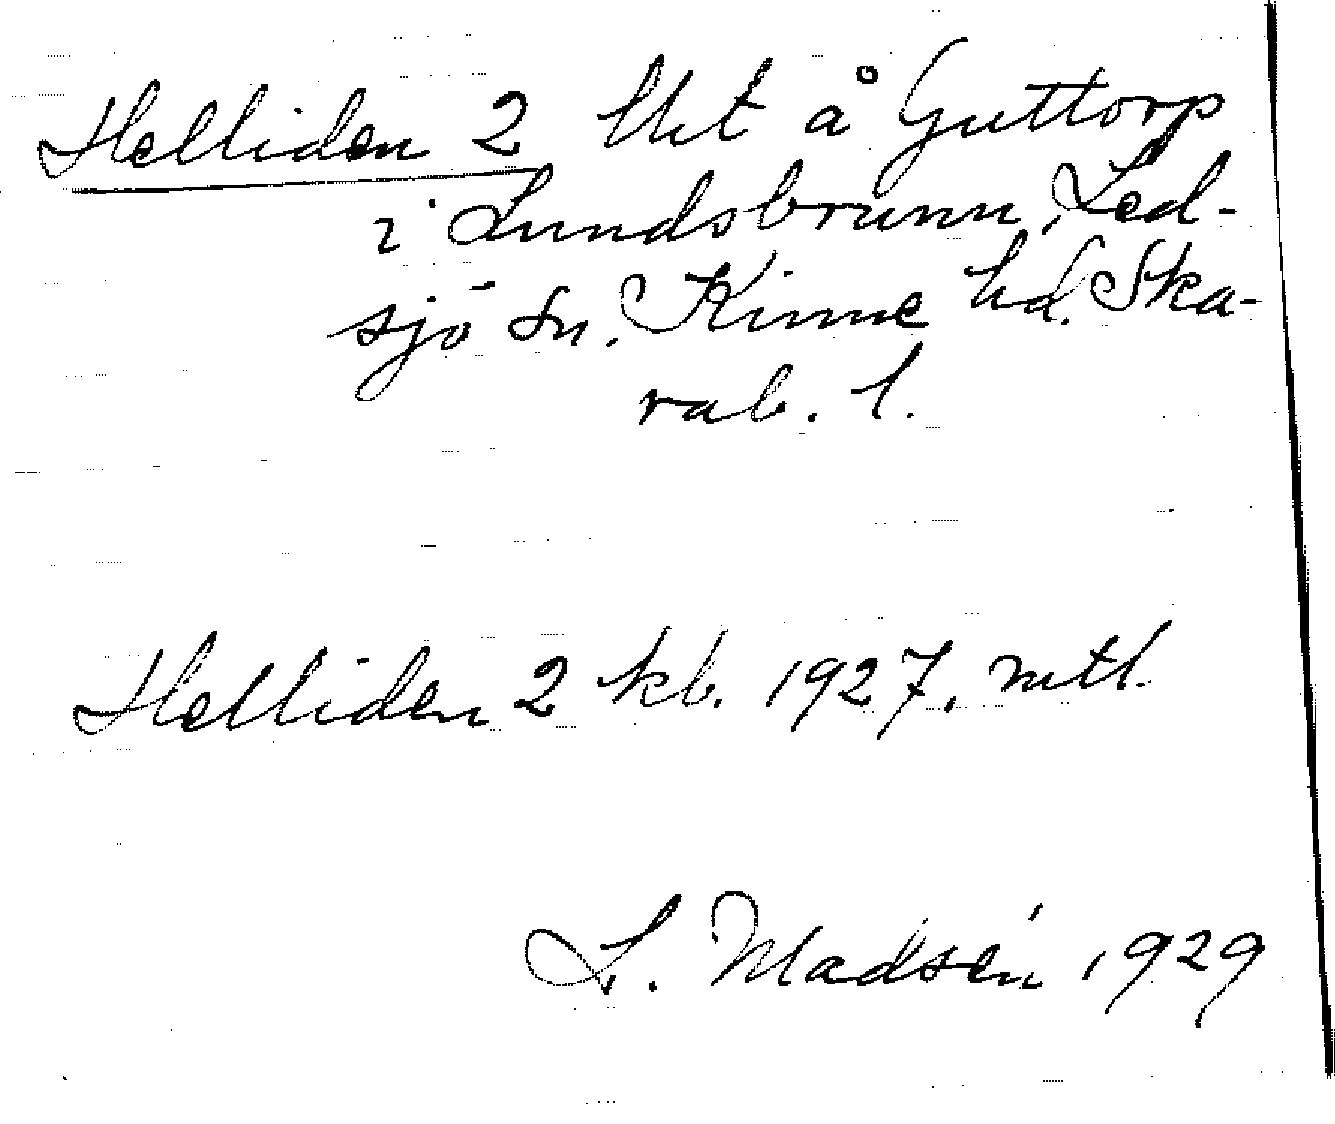 Helliden 2 Utet å Guttorp
i Lundsbrunn, Led-
sjö sn. Kinne hd. Ska-
rab. l.
Helliden 2 kb. 1927. mtl.
L. Madsén 1929